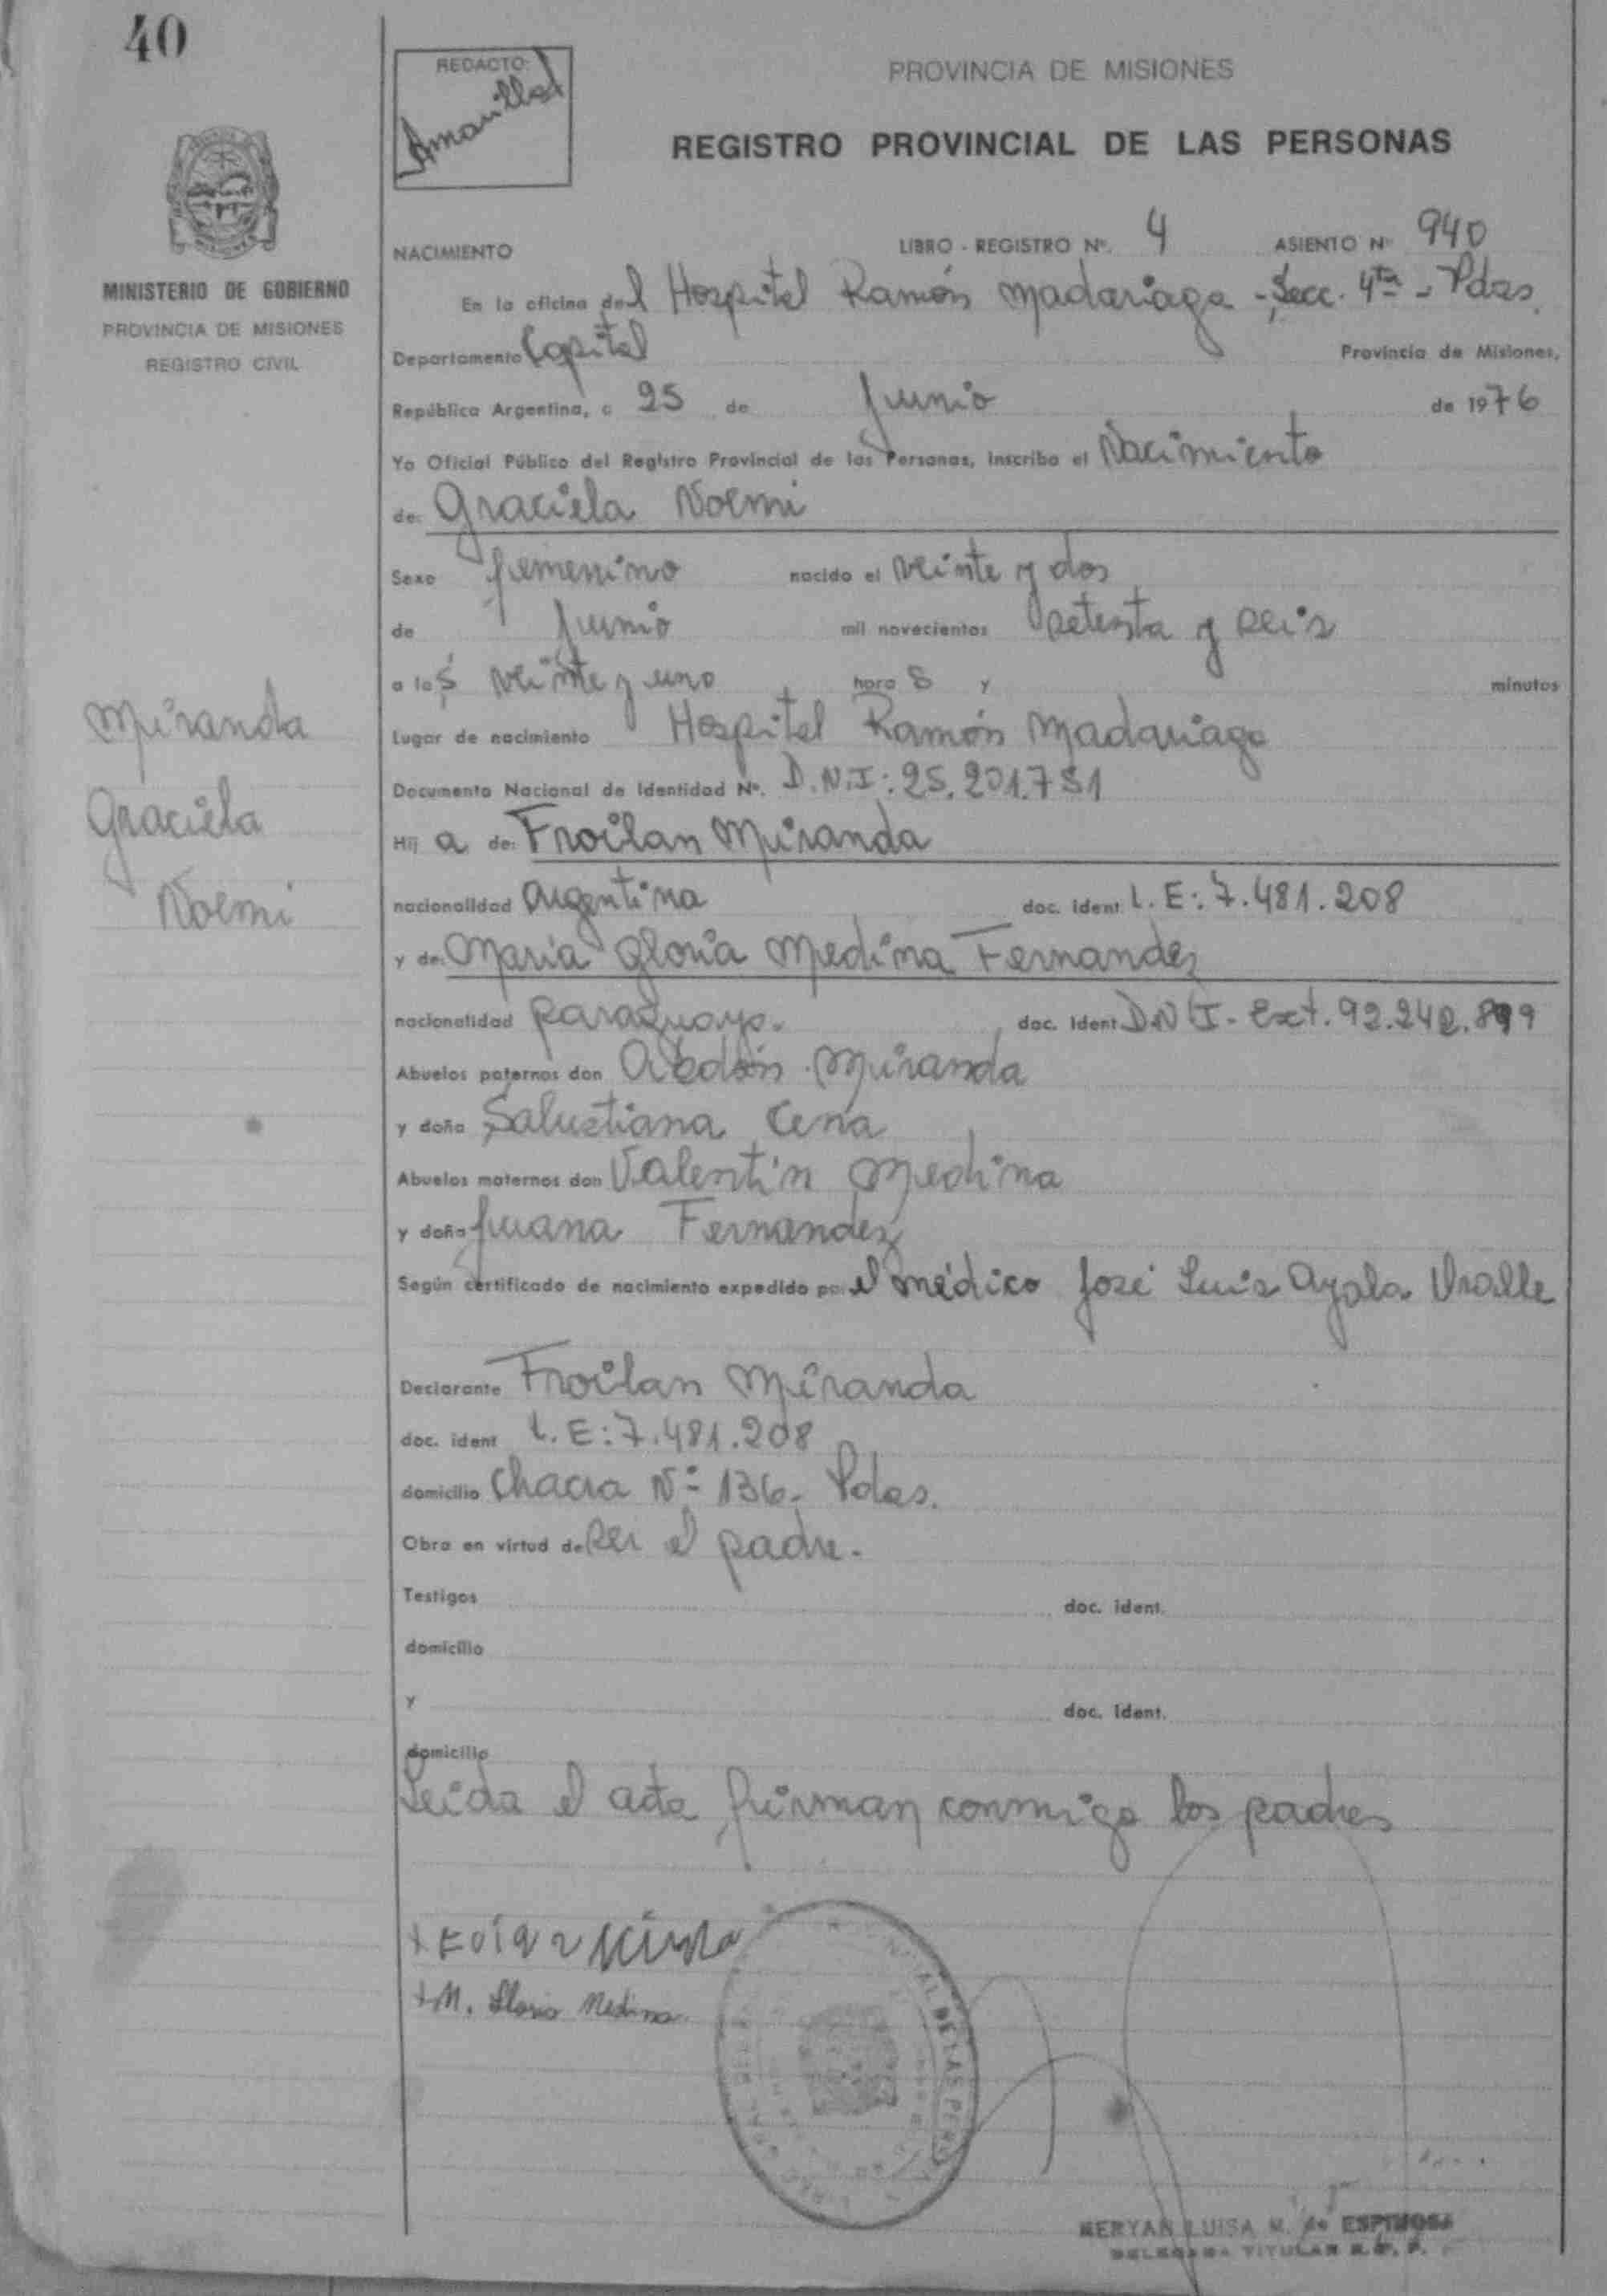 40
REDACTO:
Amarilla
PROVINCIA DE MISIONES
REGISTRO PROVINCIAL DE LAS PERSONAS
MINISTERIO DE GOBIERNO
PROVINCIA DE MISIONES
REGISTRO CIVIL
NACIMIENTO LIBRO - REGISTRO Nº. 4 ASIENTO Nº 940
En la oficina del Hospital Ramón Madariaga - Secc. 4ta - Pdas.
Departamento Capital Provincia de Misiones,
República Argentina, a 25 de Junio de 1976
Yo Oficial Público del Registro Provincial de las Personas, inscribo el Nacimiento
de: Graciela Noemi
Sexo femenino nacido el veinte y dos
de Junio mil novecientos setenta y seis
a las veinte y uno hora s y minutos
Lugar de nacimiento Hospital Ramón Madariaga
Documento Nacional de Identidad Nº. D.N.I: 25.201.731
Miranda
Graciela
Noemi
Hij a de: Froilan Miranda
nacionalidad Argentina doc. ident. L.E: 7.481.208
y de: Maria Gloria Medina Fernandez
nacionalidad paraguaya. doc. ident. DNI - Ext. 92.242.899
Abuelos paternos don Abdón Miranda
y doña Salustiana Cena
Abuelos maternos don Valentin Medina
y doña Juana Fernandez
Según certificado de nacimiento expedido por el médico José Luis Ayala Uralle
Declarante Froilan Miranda
doc. ident L.E: 7.481.208
domicilio Chacra Nº 136 - Pdas.
Obra en virtud de ser el padre.
Testigos doc. ident.
domicilio
y doc. ident.
domicilio
Leida el acta firman conmigo los padres
+M. Gloria Medina
DE LAS PERS
MERYAN LUISA M. de ESPINOSA
DELEGADA TITULAR R.P.P.